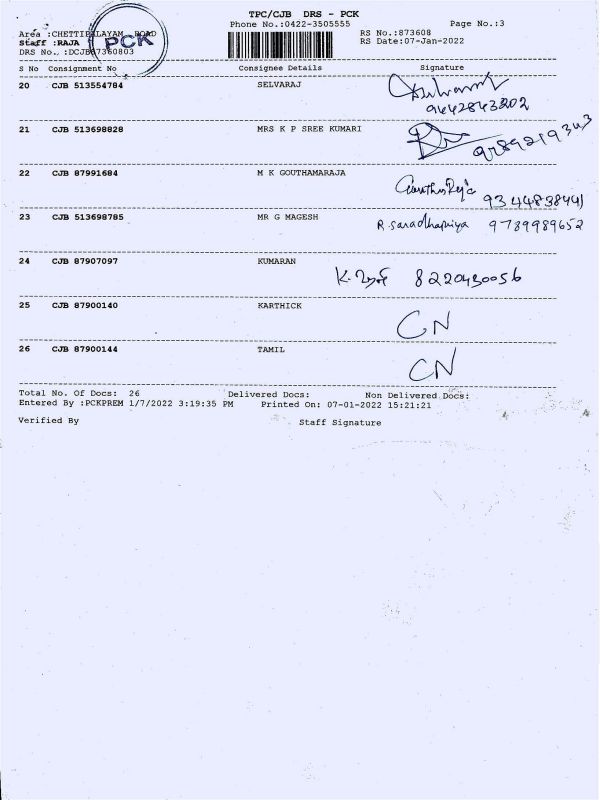 TPC/CJB DRS - PCK
Phone No.:0422-3505555 Page No.:3
Area :CHETTIPALAYAM ROAD RS No.:873608
Staff :RAJA PCK RS Date:07-Jan-2022
DRS No., :DCJB67360803
S No Consignment No Consignee Details Signature
20 CJB 513554784 SELVARAJ
9442843202
21 CJB 513698828 MRS K P SREE KUMARI
9789219343
22 CJB 87991684 M K GOUTHAMARAJA
9344838441
23 CJB 513698785 MR G MAGESH R. Saradhapriya 9789989652
24 CJB 87907097 KUMARAN
8220430056
25 CJB 87900140 KARTHICK CN
26 CJB 87900144 TAMIL CN
Total No. Of Docs: 26 Delivered Docs: Non Delivered Docs:
Entered By :PCKPREM 1/7/2022 3:19:35 PM Printed On: 07-01-2022 15:21:21
Verified By Staff Signature